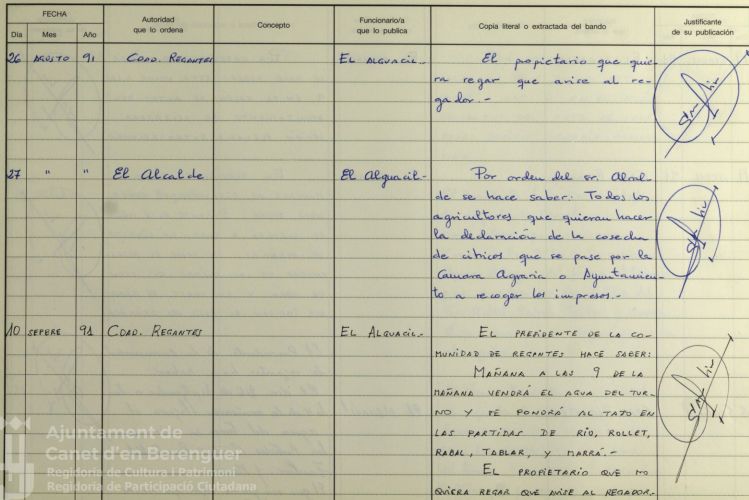 FECHA
Día Mes Año
Autoridad
que lo ordena
Concepto
Funcionario/a
que lo publica
Copia literal o extractada del bando
Justificante
de su publicación
26 AGOSTO 91 COAD. REGANTES EL ALGUACIL.-
El popietario que quie-
ra regar que avise al re-
gador.-
27 " " El Alcalde El Alguacil-
Por orden del sr. Alcal-
de se hace saber: Todos los
agricultores que quieran hacer
la declaración de la cosecha
de citricos que se pase por la
Camara Agraria o Ayuntamien-
to a recoger los impresos.-
10 SEPBRE 91 COAD. REGANTES EL ALGUACIL-
EL PRESIDENTE DE LA CO-
MUNIDAD DE REGANTES HACE SABER:
MAÑANA A LAS 9 DE LA
MAÑANA VENDRÁ EL AGUA DEL TUR-
NO Y SE PONDRÁ AL TAJO EN
LAS PARTIDAS DE RIO, ROLLET,
RABAL, TABLAR, Y MARRÁ.-
EL PROPIETARIO QUE NO
QUIERA REGAR QUE AVISE AL REGADOR.
Ajuntament de
Canet d'en Berenguer
Regidoria de Cultura i Patrimoni
Regidoria de Participació Ciutadana